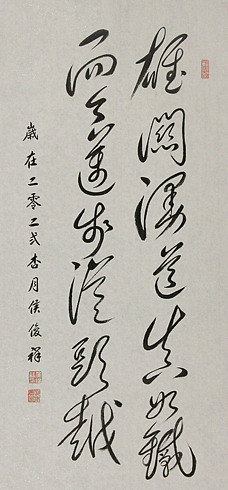 雄関漫道真如鐵
而今邁步從頭越
歲在二零二弍杏月侯俊祥